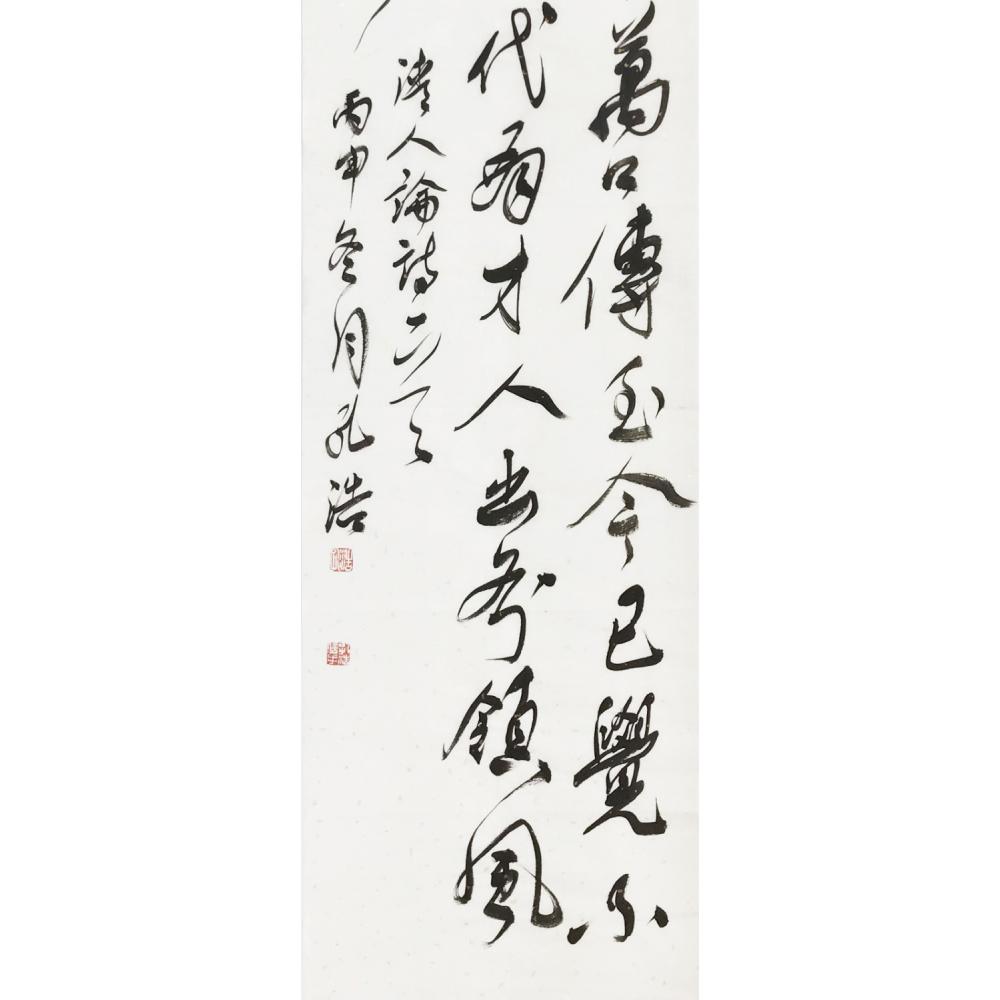 萬口傳至今已覺不
代有才人出各領風
清人論詩
丙申冬月孔浩